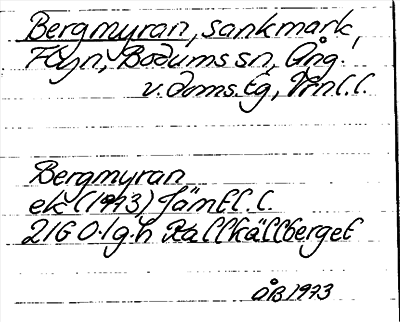 Bergmyran, sankmark,
Flyn, Bodums sn, Ång.
v.doms.Eg, Vrnl.l.
Bergmyran
ek (1973) Jämtl.l.
21G 0-1g.h Rallkällberget
ÅB 1973